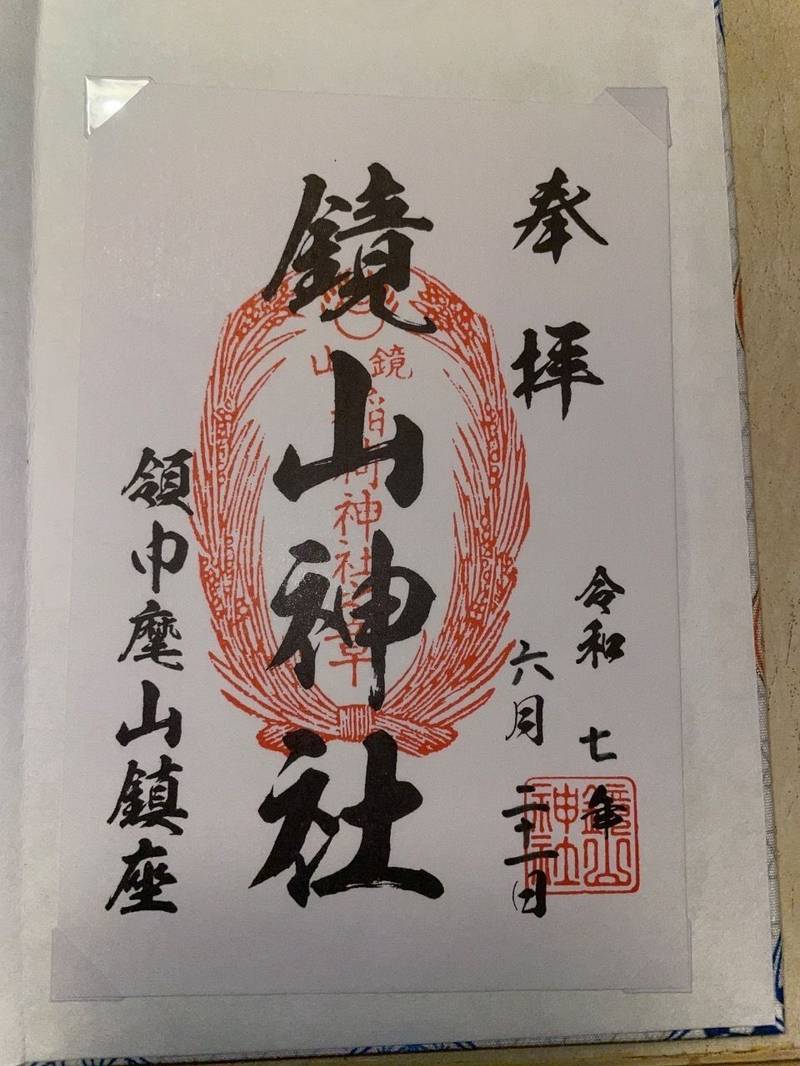 奉拝
令和七年
六月二十一日
鏡山神社
鏡山
鏡山
稲荷神社章
鏡山神社
領巾麾山鎮座